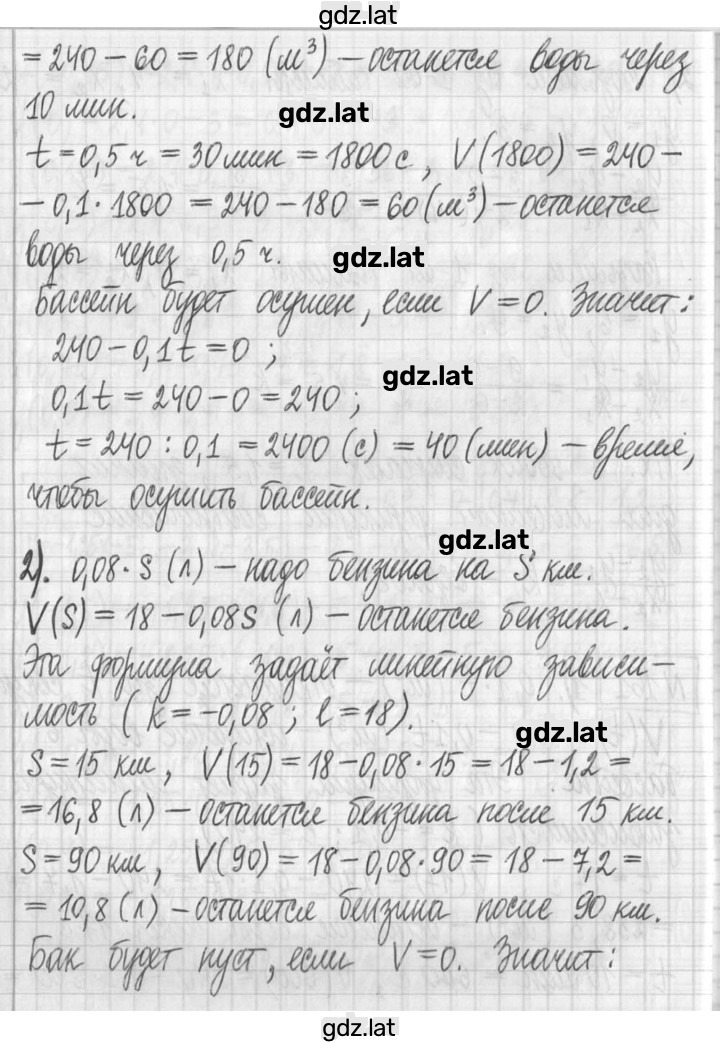 gdz.lat
= 240 − 60 = 180 (м³) − останется воды через
10 мин.
gdz.lat
t = 0,5 ч = 30 мин = 1800 с, V(1800) = 240 −
− 0,1 · 1800 = 240 − 180 = 60 (м³) − останется
воды через 0,5 ч.
gdz.lat
Бассейн будет осушен, если V = 0. Значит:
240 − 0,1t = 0 ;
gdz.lat
0,1t = 240 − 0 = 240 ;
t = 240 : 0,1 = 2400 (с) = 40 (мин) − время,
чтобы осушить бассейн.
gdz.lat
2). 0,08 · S (л) − надо бензина на S км.
V(S) = 18 − 0,08S (л) − останется бензина.
Эта формула задаёт линейную зависи−
мость ( k = −0,08 ; l = 18).
gdz.lat
S = 15 км, V(15) = 18 − 0,08 · 15 = 18 − 1,2 =
= 16,8 (л) − останется бензина после 15 км.
S = 90 км, V(90) = 18 − 0,08 · 90 = 18 − 7,2 =
= 10,8 (л) − останется бензина после 90 км.
Бак будет пуст, если V = 0. Значит:
gdz.lat